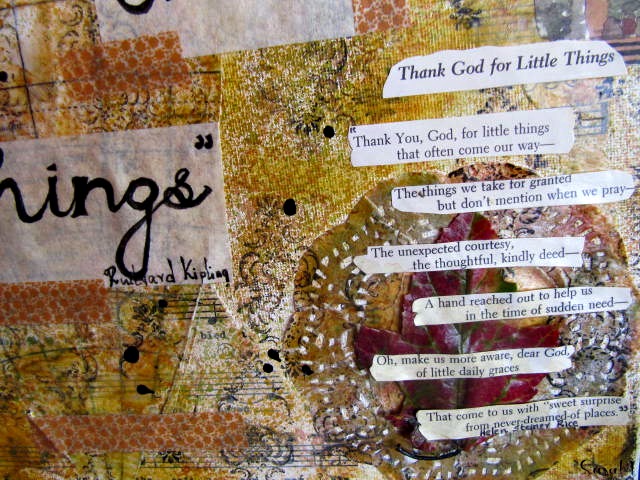 hings"
Rudyard Kipling
Thank God for Little Things
"Thank You, God, for little things
that often come our way—
The things we take for granted
but don't mention when we pray—
The unexpected courtesy,
the thoughtful, kindly deed—
A hand reached out to help us
in the time of sudden need—
Oh, make us more aware, dear God,
of little daily graces
That come to us with "sweet surprise"
from never-dreamed-of places."
Helen Steiner Rice